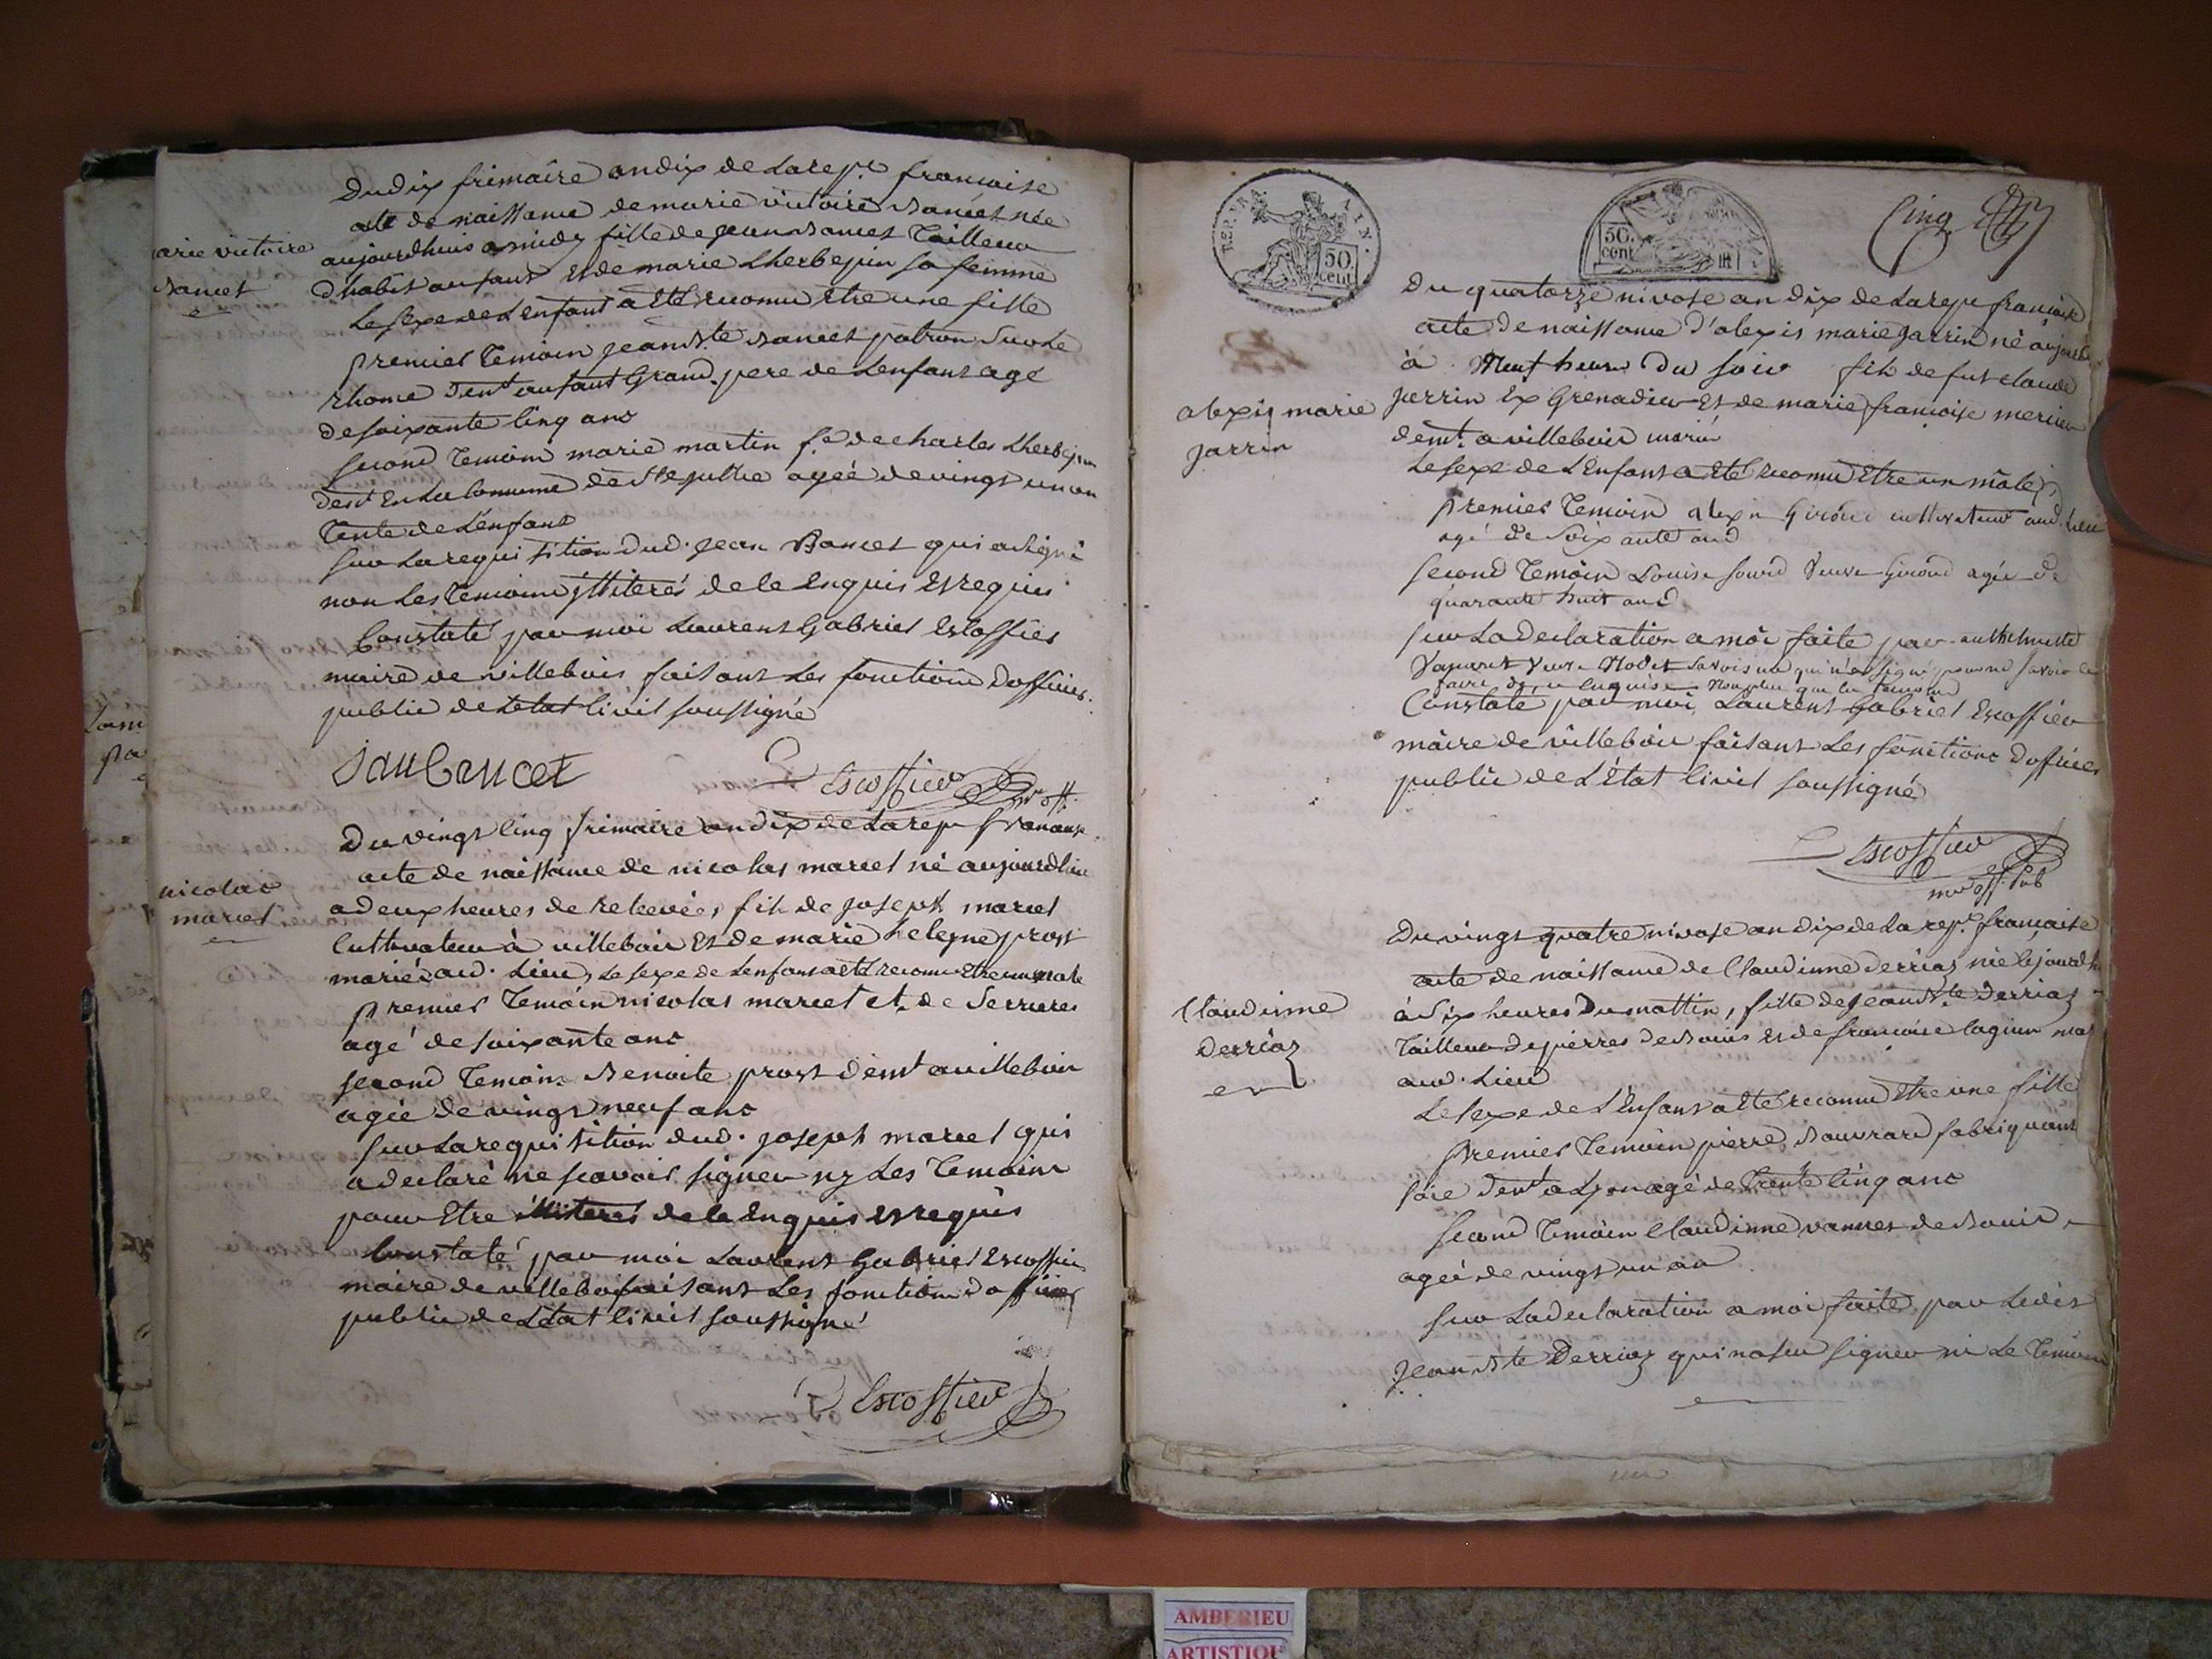 Du dix frimaire an dix de la rep.e francaise
acte de naissance de marie victoire Bancet née
aujourdhuis a midy fille de jean Bancet Tailleur
arie victoire
Bancet
d'habit au sault et de marie Lherbepin sa femme
Le sexe de L'enfant a eté reconnu etre une fille
premier Temoin jean Bte Bancet patron sur Le
rhone dem.t au sault Grand pere de L'enfant agé
de soixante cinq ans
second Temoin marie martin f.e de charles Lherbepin
dem.t En La commune de agée de vingt un an
Tente de L'enfant
sur La requisition dud. jean Bancet qui a signé
non Les Temoins illiterés de ce Enquis et requis
Constaté par moi Laurent Gabriel Escoffier
maire de villebois faisant Les fonctions d'officier
public de L'etat Civil soussigné
Escoffier m.re off.
Du vingt cinq frimaire an dix de La rep francaise
acte de naissance de nicolas marcel né aujourdhui
nicolas
marcel
a deux heures de relevée, fils de joseph marcel
Cultivateur à villebois et de marie helegne prost
mariés aud. Lieu, Le sexe de L'enfant a eté reconnu Etre un male
premier Temoin nicolas marcel de Serrieres
agé de soixante ans
second Temoin Benoite prost dem.t a villebois
agée de vingt neuf ans
sur La requisition dud. joseph marcel qui
a declaré ne scavoir signer ny Les Temoins
pour Etre illiterés de ce Enquis et requis
Constaté par moi Laurent Gabriel Escoffier
maire de villebois faisant Les fonctions d'officier
public de L'Etat Civil soussigné
Escoffier
REP. FRA
50
cent
50.
cent
Cinq
Du quatorze nivose an dix de La rep francaise
acte de naissance d'alexis marie jarrin né aujourdh
à Neuf heures Du soir fils de fut claude
alexis marie
jarrin
jarrin Ex Grenadier Et de marie francoise mercier
dem.t a villebois mariés
Le sexe de L'Enfant a Eté reconnu Etre un mâle,
premier Temoin alexis Giroud cultivateur aud. lieu
agé De Soixante ans
second Temoin Louise sourd Veuve Giroud agée De
quarante huit ans
sur La declaration a moi faite par
Veuve qui n'a signé pour ne savoir le
faire de ce enquise Non plus que les temoins
Constaté par moi Laurent Gabriel Escoffier
maire de villebois faisant Les fonctions d'officier
public de L'Etat Civil soussigné
Escoffier
m.re off. Pub
Du vingt quatre nivose an dix de La rep.e francaise
acte de naissance de Claudinne Derriaz née Cejourdh
Claudinne
Derriaz
à Six heures Du mattin, fille de jean Bte Derriaz
Tailleur de pierres de Bouis et de francoise mar
aud. Lieu
Le sexe de L'Enfant a Eté reconnu Etre une fille
Premier Temoin pierre Bouvrard fabriquant
soie dem.t a Lyon agé de Trente Cinq ans
second Temoin Claudinne vannet de Bouis
agée de vingt un an
sur La declaration a moi faite par Ledit
jean Bte Derriaz qui na seu signer ni Le Temoin
AMBERIEU
ARTISTIQU